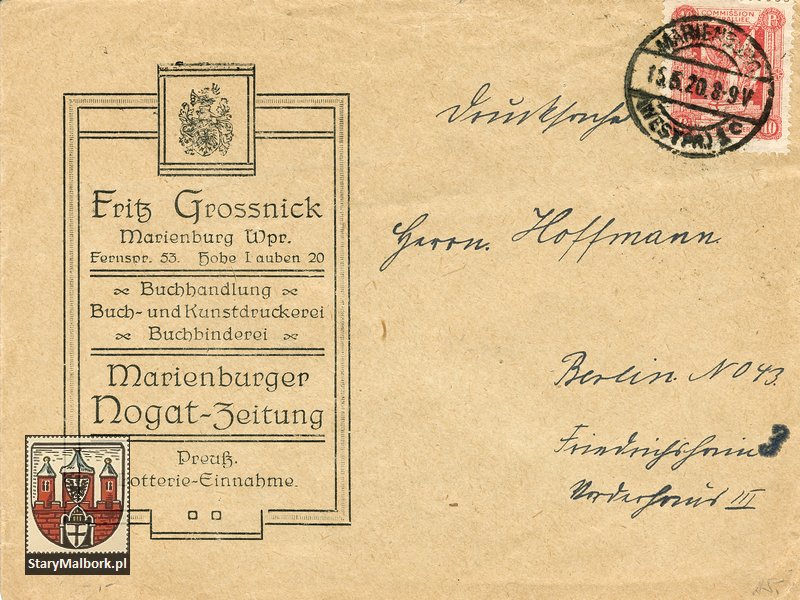 COMMISSION
MARIENBURG
15.5.20.8-9V
(WESTPR) 1 c
10
Drucksache
Fritz Grossnick
Marienburg Wpr.
Fernspr. 53. Hohe Lauben 20
Buchhandlung
Buch- und Kunstdruckerei
Buchbinderei
Marienburger
Nogat-Zeitung
Preuß.
otterie-Einnahme.
Herrn. Hoffmann.
Berlin. NO 43.
Friedrichshain 3
Vorderhaus III
StaryMalbork.pl